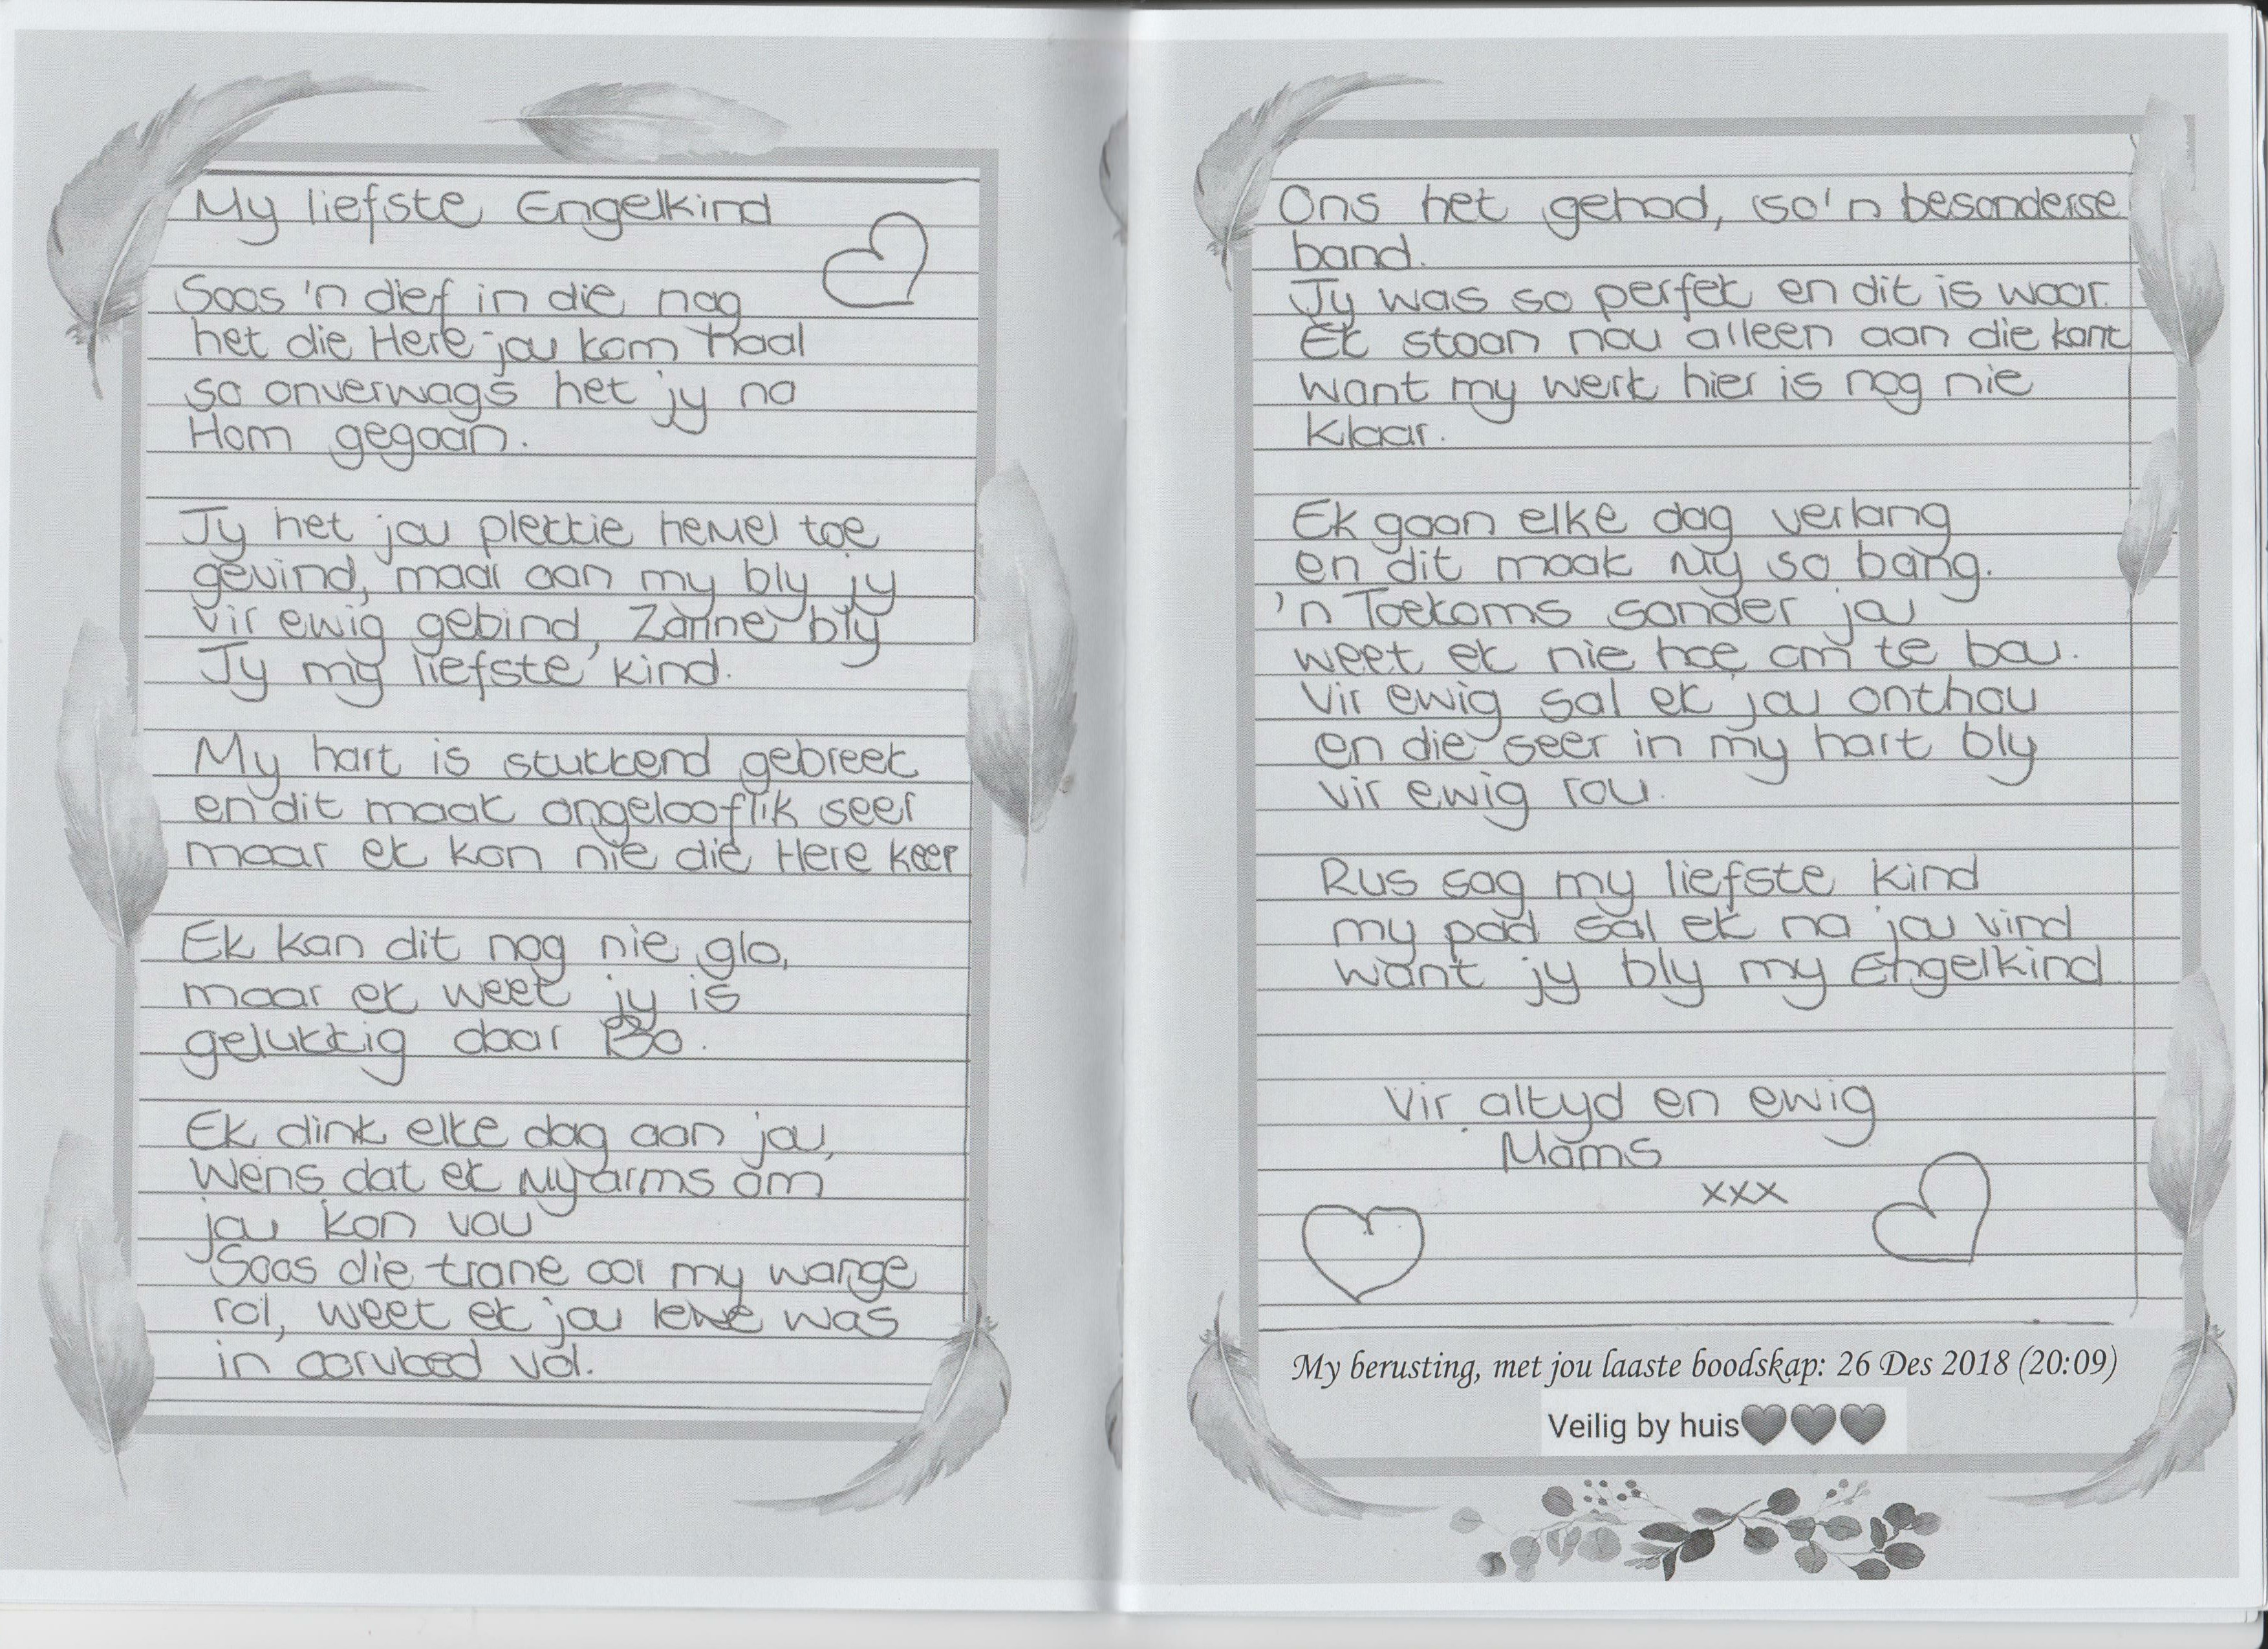 My liefste Engelkind
Soos 'n dief in die nag
het die Here jou kom haal
so onverwags het jy na
Hom gegaan.
Jy het jou plekkie hemel toe
gevind, maar aan my bly jy
vir ewig gebind, Zanne bly
Jy my liefste kind.
My hart is stukkend gebreek
en dit maak ongelooflik seer
maar ek kon nie die Here keer
Ek kan dit nog nie glo,
maar ek weet jy is
gelukkig daar Bo.
Ek dink elke dag aan jou,
Wens dat ek My arms om
jou kon vou
Soos die trane oor my wange
rol, weet ek jou lewe was
in oorvloed vol.
Ons het gehad, so 'n besonderse
band.
Jy was so perfek en dit is waar.
Ek staan nou alleen aan die kant
want my werk hier is nog nie
klaar.
Ek gaan elke dag verlang
en dit maak My so bang.
'n Toekoms sonder jou
weet ek nie hoe om te bou.
Vir ewig sal ek jou onthou
en die seer in my hart bly
vir ewig rou.
Rus sag my liefste kind
my pad sal ek na jou vind
want jy bly my Engelkind
Vir altyd en ewig
Mams
xxx
My berusting, met jou laaste boodskap: 26 Des 2018 (20:09)
Veilig by huis🖤🖤🖤